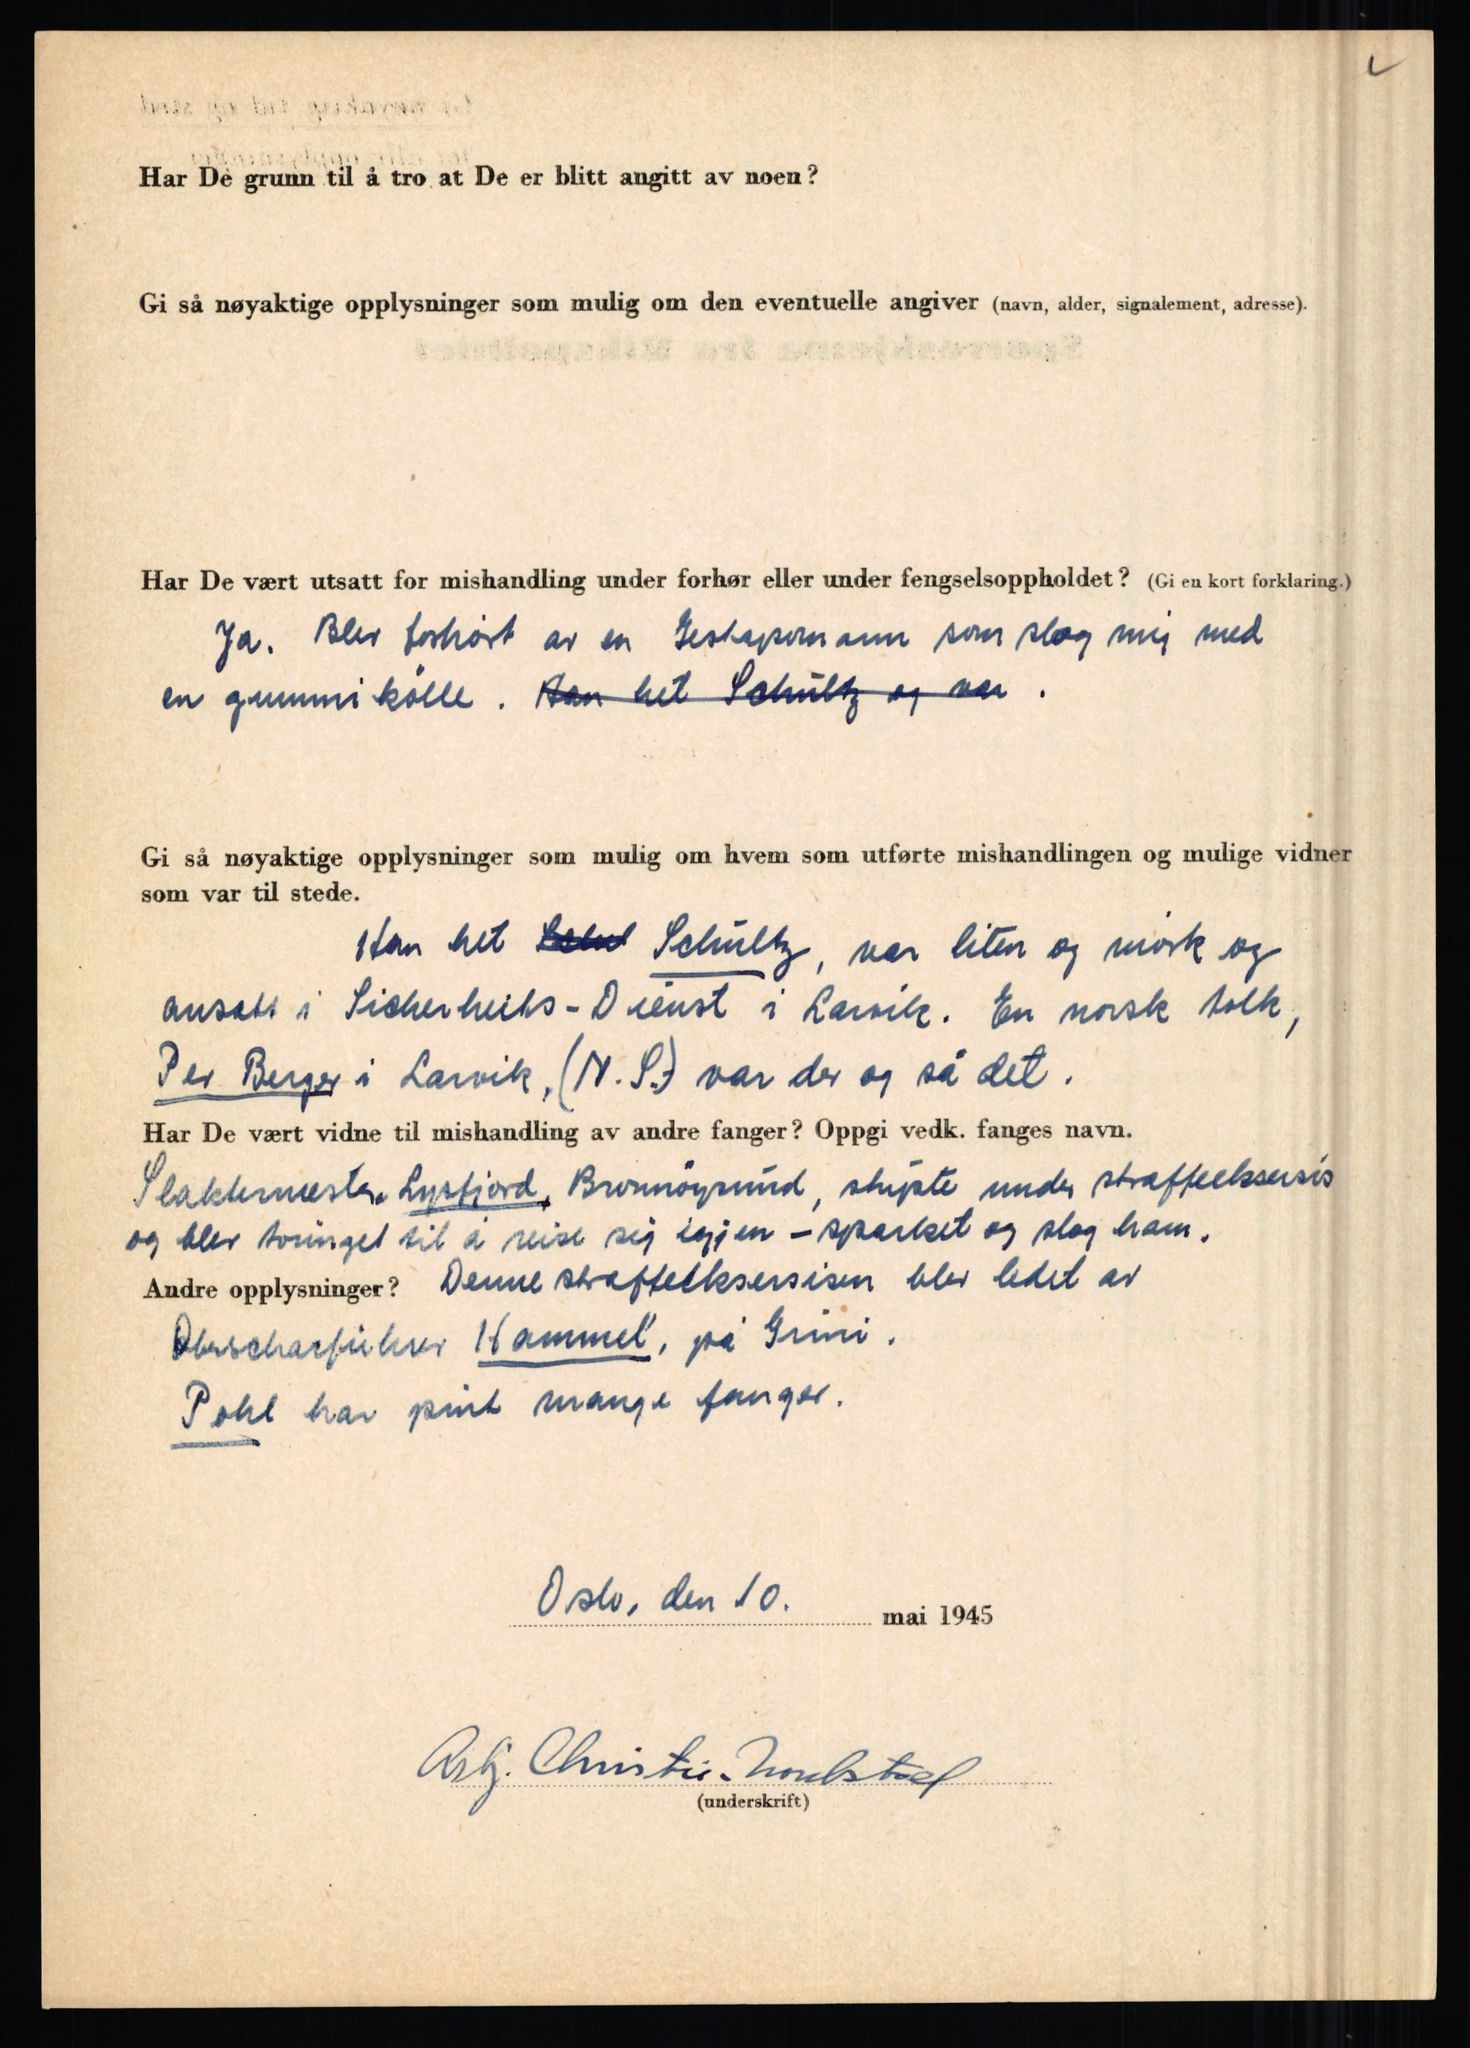 Har De grunn til å tro at De er blitt angitt av noen?
Gi så nøyaktige opplysninger som mulig om den eventuelle angiver (navn, alder, signalement, adresse).
Har De vært utsatt for mishandling under forhør eller under fengselsoppholdet? (Gi en kort forklaring.)
Ja. Blev forhört av en Gestapomann som slog mig med
en gummikölle. Han het Schultz og var .
Gi så nøyaktige opplysninger som mulig om hvem som utførte mishandlingen og mulige vidner
som var til stede.
Han het Schul Schultz, var liten og mörk og
ansatt i Sicherheits-Dienst i Larvik. En norsk tolk,
Per Berger i Larvik, (N.S.) var der og så det.
Har De vært vidne til mishandling av andre fanger? Oppgi vedk. fanges navn.
Slaktermester Lysfjord, Bronnöysund, stupte under straffeeksersis
og blev tvinget til å reise sig igjen - sparket og slog ham.
Andre opplysninger? Denne straffeeksersisen blev ledet av
Oberscharführer Hammel, på Grini.
Pohl har pint mange fanger.
Oslo, den 10. mai 1945
Asbj. Christie-
(underskrift)